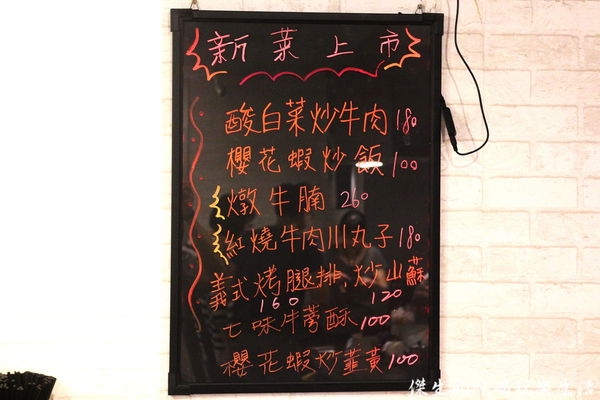 新菜上市
酸白菜炒牛肉180
櫻花蝦炒飯100
燉牛腩260
紅燒牛肉川丸子180
義式烤腿排、炒山蘇
160 120
七味牛蒡酥100
櫻花蝦炒韮黃100